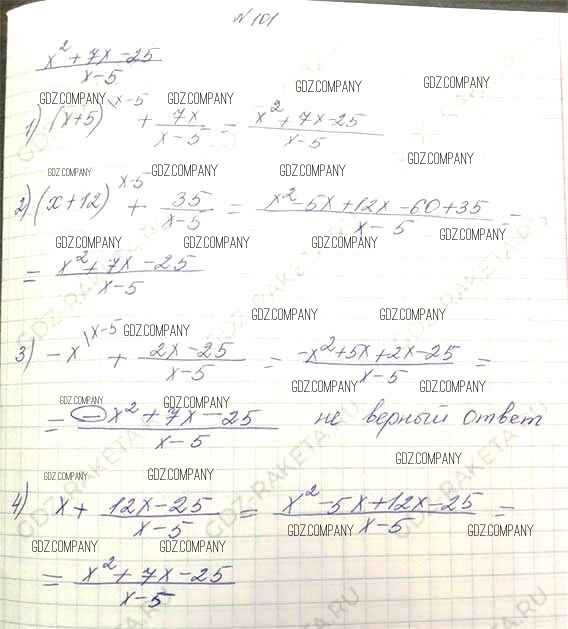 №101
x² + 7x - 25 / x - 5
GDZ.COMPANY GDZ.COMPANY GDZ.COMPANY GDZ.COMPANY
1) (x+5) \x-5 + 7x / x - 5 = x² + 7x - 25 / x - 5
GDZ.COMPANY GDZ.COMPANY GDZ.COMPANY GDZ.COMPANY
2) (x+12) \x-5 + 35 / x - 5 = x² - 5x + 12x - 60 + 35 / x - 5 =
GDZ.COMPANY GDZ.COMPANY GDZ.COMPANY GDZ.COMPANY
= x² + 7x - 25 / x - 5
GDZ.COMPANY GDZ.COMPANY GDZ.COMPANY
3) -x \x-5 + 2x - 25 / x - 5 = -x² + 5x + 2x - 25 / x - 5 =
GDZ.COMPANY GDZ.COMPANY GDZ.COMPANY GDZ.COMPANY
= -x² + 7x - 25 / x - 5 не верный ответ
GDZ.COMPANY GDZ.COMPANY GDZ.COMPANY
4) x + 12x - 25 / x - 5 = x² - 5x + 12x - 25 / x - 5 =
GDZ.COMPANY GDZ.COMPANY GDZ.COMPANY GDZ.COMPANY
= x² + 7x - 25 / x - 5
GDZ-RAKETA.RU